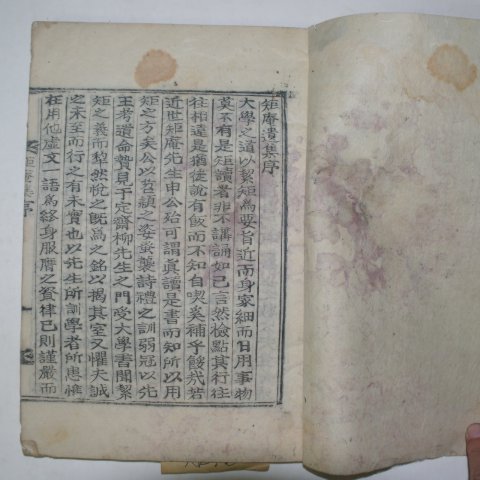 矩庵遺集序
大學之道以絜矩爲要旨近而身家細而日用事物
莫不有是矩讀者非不講誦如己言然檢點其行往
往相違是猶徒說有飯而不知自喫奚補乎餒哉若
近世矩庵先生申公殆可謂眞讀是書而知所以用
矩之方矣公以哲 之姿 襲詩禮之訓弱冠以先
王考遺命贄見于定齋柳先生之門受大學書聞絜
矩之義而犂然悅之旣爲之銘以揭其室又懼夫誠
之未至而行之有未實也以先生所訓學者所患惟
在用他虛文一語爲終身服膺之 律己則謹嚴而
矩庵集 序